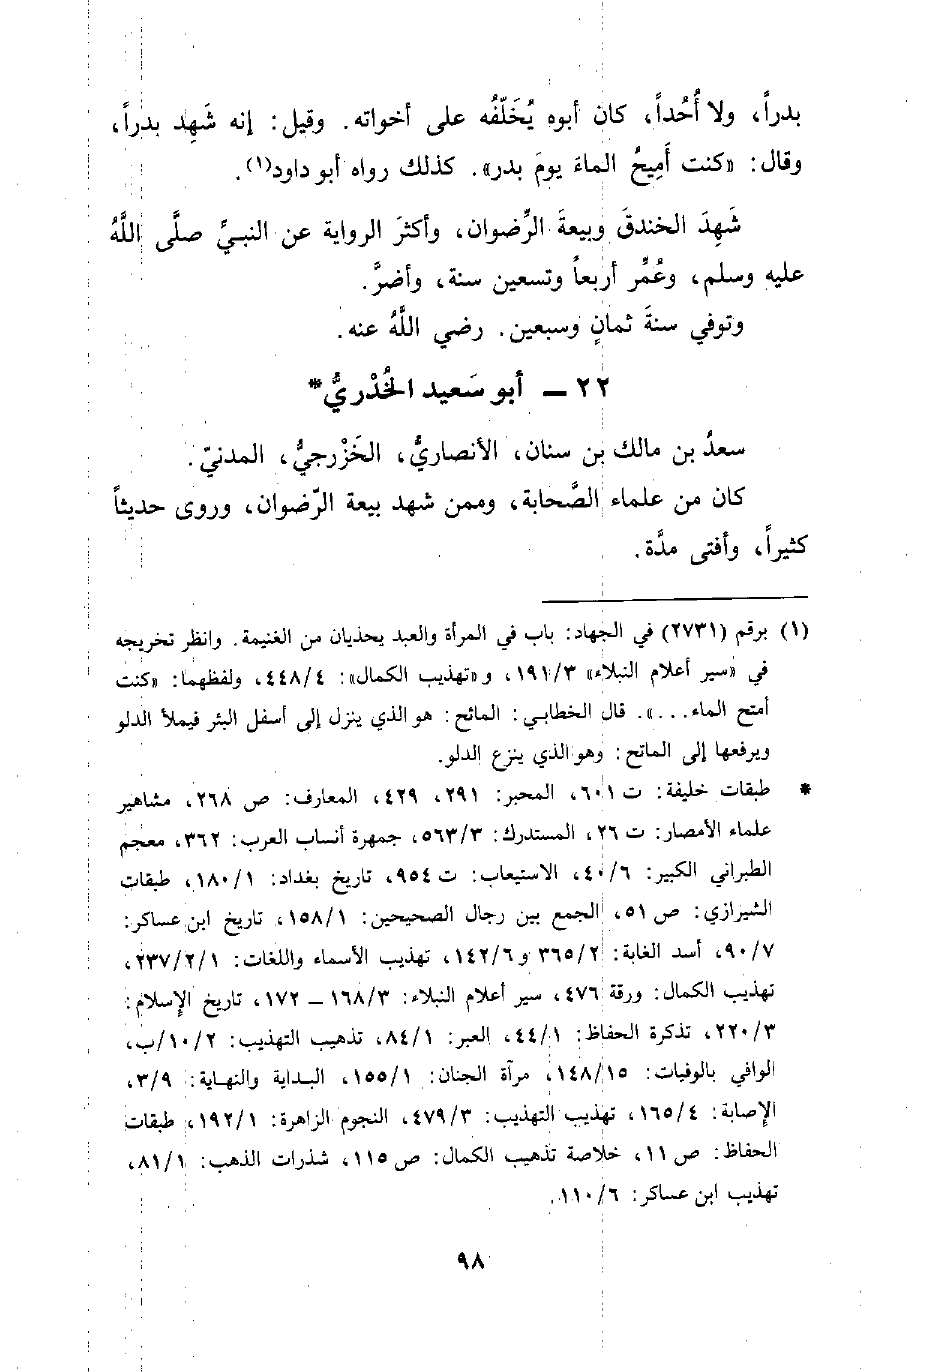 بدراً، ولا أُحُداً، كان أبوه يُخَلّفُه على أخواته. وقيل: إنه شَهِد بدراً،
وقال: «كنت أَمِيحُ الماءَ يومَ بدر». كذلك رواه أبو داود(١).
شَهِدَ الخندقَ وبيعةَ الرِّضوان، وأكثرَ الرواية عن النبيِّ صلَّى اللَّهُ
عليه وسلم، وعُمِّر أربعاً وتسعين سنة، وأضرَّ.
وتوفي سنةَ ثمانٍ وسبعين. رضي اللَّهُ عنه.
٢٢ ــ أبو سَعيد الخُدْريُّ*
سعدُ بن مالك بن سنان، الأنصاريُّ، الخَزْرجيُّ، المدنيّ.
كان من علماء الصَّحابة، وممن شهد بيعة الرّضوان، وروى حديثاً
كثيراً، وأفتى مدَّة.
(١) برقم (٢٧٣١) في الجهاد: باب في المرأة والعبد يحذيان من الغنيمة. وانظر تخريجه
في «سير أعلام النبلاء» ١٩١/٣، و«تهذيب الكمال»: ٤٤٨/٤، ولفظهما: «كنت
أمتح الماء...». قال الخطابي: المائح: هو الذي ينزل إلى أسفل البئر فيملأ الدلو
ويرفعها إلى الماتح: وهو الذي ينزع الدلو.
* طبقات خليفة: ت ٦٠١، المحبر: ٢٩١، ٤٢٩، المعارف: ص ٢٦٨، مشاهير
علماء الأمصار: ت ٢٦، المستدرك: ٥٦٣/٣، جمهرة أنساب العرب: ٣٦٢، معجم
الطبراني الكبير: ٤٠/٦، الاستيعاب: ت ٩٥٤، تاريخ بغداد: ١٨٠/١، طبقات
الشيرازي: ص ٥١، الجمع بين رجال الصحيحين: ١٥٨/١، تاريخ ابن عساكر:
٩٠/٧، أسد الغابة: ٣٦٥/٢ و١٤٢/٦، تهذيب الأسماء واللغات: ٢٣٧/٢/١،
تهذيب الكمال: ورقة ٤٧٦، سير أعلام النبلاء: ١٦٨/٣ ــ ١٧٢، تاريخ الإسلام:
٢٢٠/٣، تذكرة الحفاظ: ٤٤/١، العبر: ٨٤/١، تذهيب التهذيب: ١٠/٢/ب،
الوافي بالوفيات: ١٤٨/١٥، مرآة الجنان: ١٥٥/١، البداية والنهاية: ٣/٩،
الإصابة: ١٦٥/٤، تهذيب التهذيب: ٤٧٩/٣، النجوم الزاهرة: ١٩٢/١، طبقات
الحفاظ: ص ١١، خلاصة تذهيب الكمال: ص ١١٥، شذرات الذهب: ٨١/١،
تهذيب ابن عساكر: ١١٠/٦.
٩٨